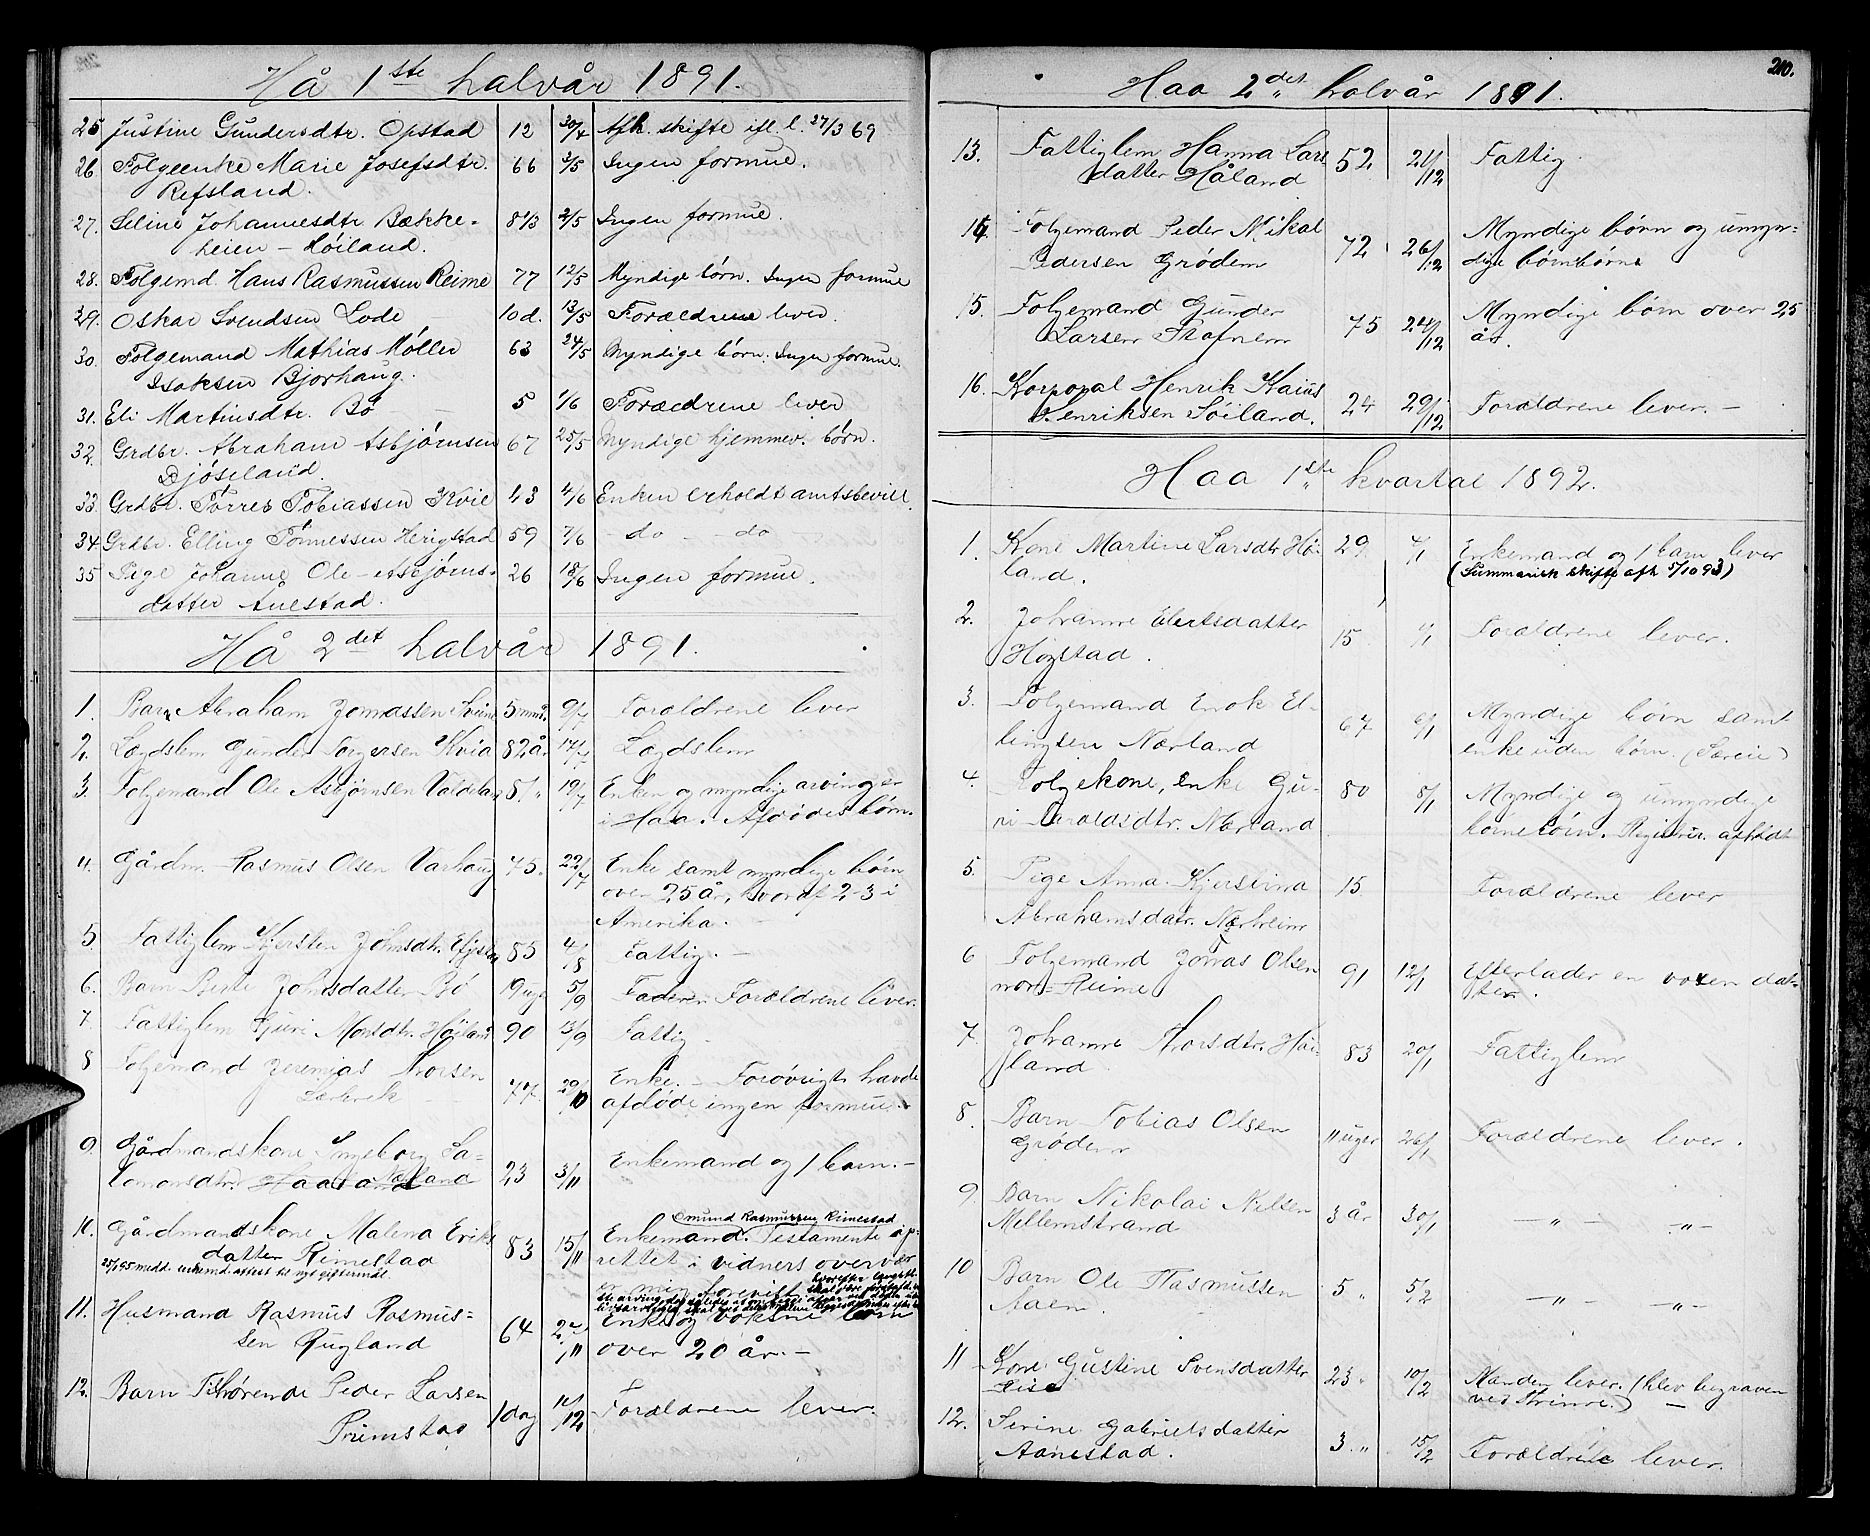 Hå 1ste halvår 1891.
25 Justine Gundersdtr. Opstad 12 30/4 Afh. skifte ifl. l. 27/3 69
26. Folgeenke Marie Josefsdtr. 66 2/5 Ingen formue.
Refsland.
27. Seline Johannesdtr Bække- 8 1/3 2/5 Ingen formue.
heien - Høiland.
28. Folgemd. Hans Rasmussen Reime 77 12/5 Myndige børn. Ingen formue
29. Oskar Svendsen Lode 10 d. 13/5 Forældrene lever.
30. Folgemand Mathias Møller 63 24/5 Myndige børn. Ingen formue.
Isaksen Bjorhaug.
31. Eli Martinsdtr. Bø 5 1/6 Forældrene lever
32. Grdbr. Abraham Asbjørnsen 67 25/5 Myndige hjemmev. børn.
Djøseland.
33. Grdbr. Torres Tobiassen Kvie 43 4/6 Enken erholdt amtsbevill.
34. Grdbr. Elling Tønnessen Herigstad 59 7/6 do do
35 Pige Johanne Ole-Asbjørns- 26 18/6 Ingen formue.
datter Auestad.
Hå 2det halvår 1891.
1. Barn Abraham Jonassen 5 mnd. 9/7 Forældrene lever
2. Lægdslem Gunder Kvia 82 år. 17/7 Lægdslem
3. Folgemand Ole Asbjørnsen 81. 19/7 Enken og myndige arvinger
i Haa. Afdødes børn.
4. Gårdm. Rasmus Olsen Varhaug 75. 22/7 Enke samt myndige børn
over 25 år, hvoraf 2-3 i
Amerika.
5. Fattiglem Kjersten Johnsdtr. 85 4/8 Fattig. -
6. Barn Berte Johnsdatter Bø 19 uger 5/9 Fader Forældrene lever.
7. Fattiglem Guri Høiland 90 13/9 Fattig.
8 Folgemand Jeremias Thorsen 77. 29/10 Enke. - Forøvrigt havde
afdøde ingen formue.
9. Gårdmandskone Ingeborg Sa- 23 3/11 Enkemand og 1 barn. -
lomonsdtr. Haaland Nærland
Omund Rasmussen Rimestad
10. Gårdmandskone Malena Eriks 83 15/11 Enkemand. Testamente op-
datter Rimestad rettet i vidners overvær
25/1 95 medd. enkemd. attest til nyt giftermål.
11. Husmand Rasmus Rasmus- 64 Enke og voksne børn
sen Rugland over 20 år. -
12. Barn Peder Larsen 1 dag Forældrene lever.

210.
Haa 2det halvår 1891.
13. Fattiglem Hanna Lars- 52 21/12 Fattig.
datter Håland
14. Folgemand Peder Nikal 72 26/12 Myndige børn og umyn-
Pedersen Grødem dige børnbørn.
15. Folgemand Gunder 75 24/12 Myndige børn over 25
Larsen år.
16. Korporal Henrik Kaius 24 29/12 Forældrene lever. -
Henriksen Søiland.
Haa 1ste kvartal 1892.
1. Kone Martine Larsdtr Høi- 29. 4/1 Enkemand og 1 barn lever
land. (Summarisk skifte afh 5/10 93)
2. Johanne Elertsdatter 15 4/1 Forældrene lever.
Høgstad.
3. Folgemand Enok El- 67 6/1 Myndige børn samt
lingsen Nærland enke uden børn. (Særeie)
4. Folgekone, enke Gu- 80 8/1 Myndige og umyndige
ri Haraldsdtr. Nærland børnebørn.
5. Pige Anna Kjerstina 15 Forældrene lever
Abrahamsdatr. Nærheim
6 Folgemand Jonas Olsen 91 12/1 Efterlader en voxen dat-
nor-Reime ter.
7. Johanne Thorsdtr. Høi- 83 20/1 Fattiglem
land.
8. Barn Tobias Olsen 11 uger 26/1 Forældrene lever.
Grødem
9. Barn Nikolai Nilsen 3 år 30/1 - " - - " -
Mellemstrand
10 Barn Ole Rasmussen 5 " 5/2 - " - - " -
Aaen.
11 Kone Gustine Svensdatter 23 " 10/2 Manden lever. (blev begraven
12. Serine Gabrielsdatter 3. " 15/2 Forældrene lever.
Aanestad.